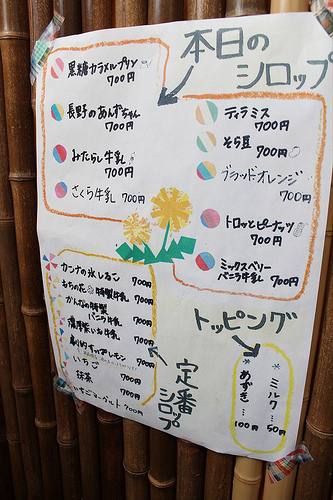 本日の
シロップ
黒糖カラメルプリン
700円
長野のあんずちゃん
700円
みたらし牛乳
700円
さくら牛乳 700円
ティラミス
700円
そら豆 700円
ブラッドオレンジ
700円
トロッとピーナッツ
700円
ミックスベリー
バニラ牛乳 700円
カンナの氷しるこ 700円
もちの花 特製牛乳 700円
かんなの特製
バニラ牛乳 700円
濃厚紫いも牛乳 700円
レモン 700円
いちご 700円
抹茶 700円
いちごヨーグルト 700円
定番
シロップ
トッピング
ミルク… 50円
あずき… 100円